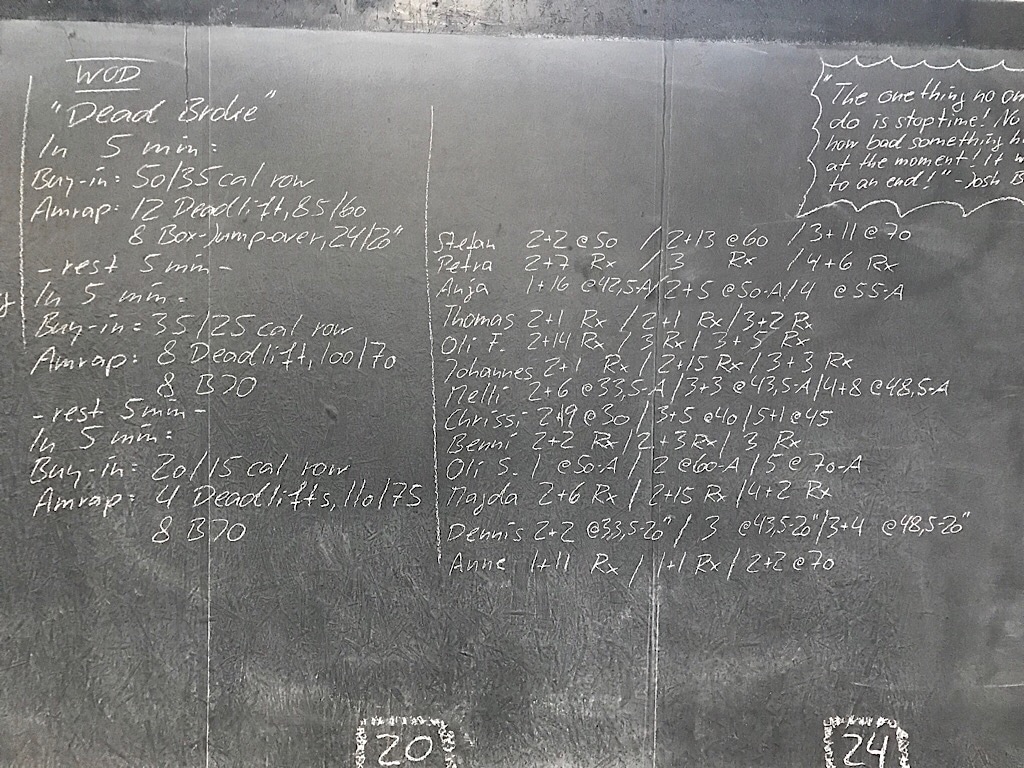 WOD
"Dead Broke"
In 5 min:
Buy-in: 50/35 cal row
Amrap: 12 Deadlift, 85/60
8 Box-Jump-over, 24/20"
- rest 5 min -
In 5 min:
Buy-in: 35/25 cal row
Amrap: 8 Deadlift, 100/70
8 BJO
- rest 5min -
In 5 min:
Buy-in: 20/15 cal row
Amrap: 4 Deadlifts, 110/75
8 BJO
Stefan 2+2 @50 / 2+13 @60 / 3+11 @70
Petra 2+7 Rx / 3 Rx / 4+6 Rx
Anja 1+16 @42,5-A / 2+5 @50-A / 4 @55-A
Thomas 2+1 Rx / 2+1 Rx / 3+2 Rx
Oli F. 2+14 Rx / 3 Rx / 3+5 Rx
Johannes 2+1 Rx / 2+15 Rx / 3+3 Rx
Melli 2+6 @33,5-A / 3+3 @43,5-A / 4+8 @48,5-A
Chrissi 2+9 @30 / 3+5 @40 / 5+1 @45
Benni 2+2 Rx / 2+3 Rx / 3 Rx
Oli S. 1 @50-A / 2 @60-A / 5 @70-A
Majda 2+6 Rx / 2+15 Rx / 4+2 Rx
Dennis 2+2 @33,5-20" / 3 @43,5-20" / 3+4 @48,5-20"
Anne 1+11 Rx / 1+1 Rx / 2+2 @70
"The one thing no on
do is stop time! No
how bad something h
at the moment! it w
to an end!" - Josh B
20
24